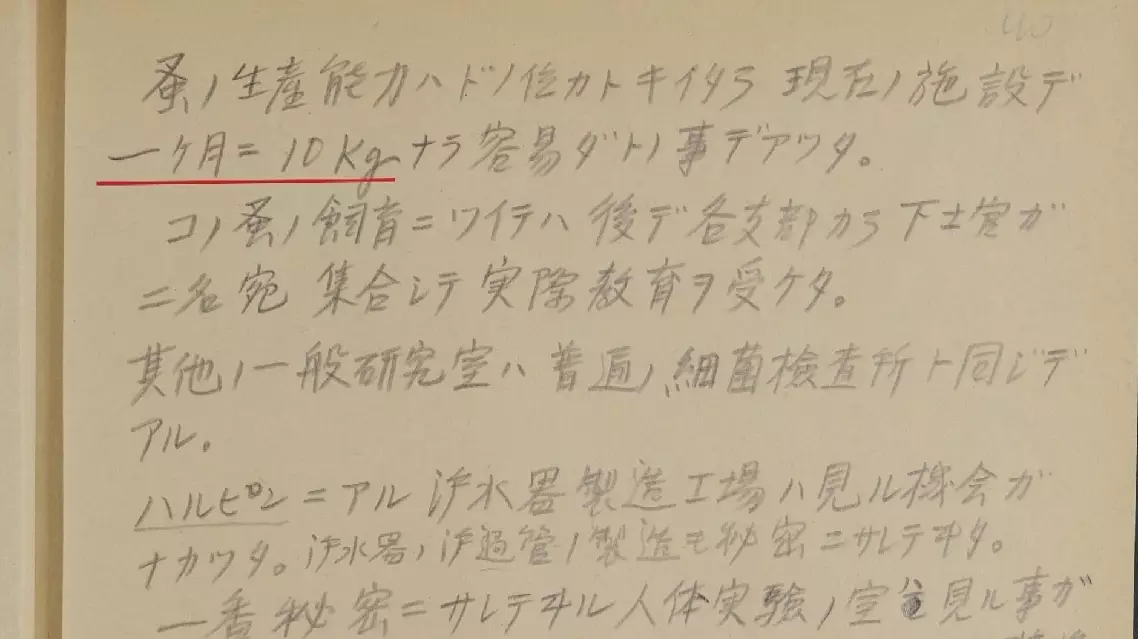 40
蚤ノ生産能力ハドノ位カトキイタラ 現在ノ施設デ
一ケ月ニ 10Kgナラ容易ダトノ事デアツタ。
コノ蚤ノ飼育ニツイテハ 後デ各支部カラ下士官ガ
二名宛 集合シテ実際教育ヲ受ケタ。
其他ノ一般研究室ハ 普通ノ細菌検査所ト同ジデ
アル。
ハルピンニアル 浄水器製造工場ハ見ル機会ガ
ナカツタ。浄水器ノ浄過管ノ製造モ秘密ニサレテヰタ。
一番秘密ニサレテヰル人体実験ノ室 見ル事ガ